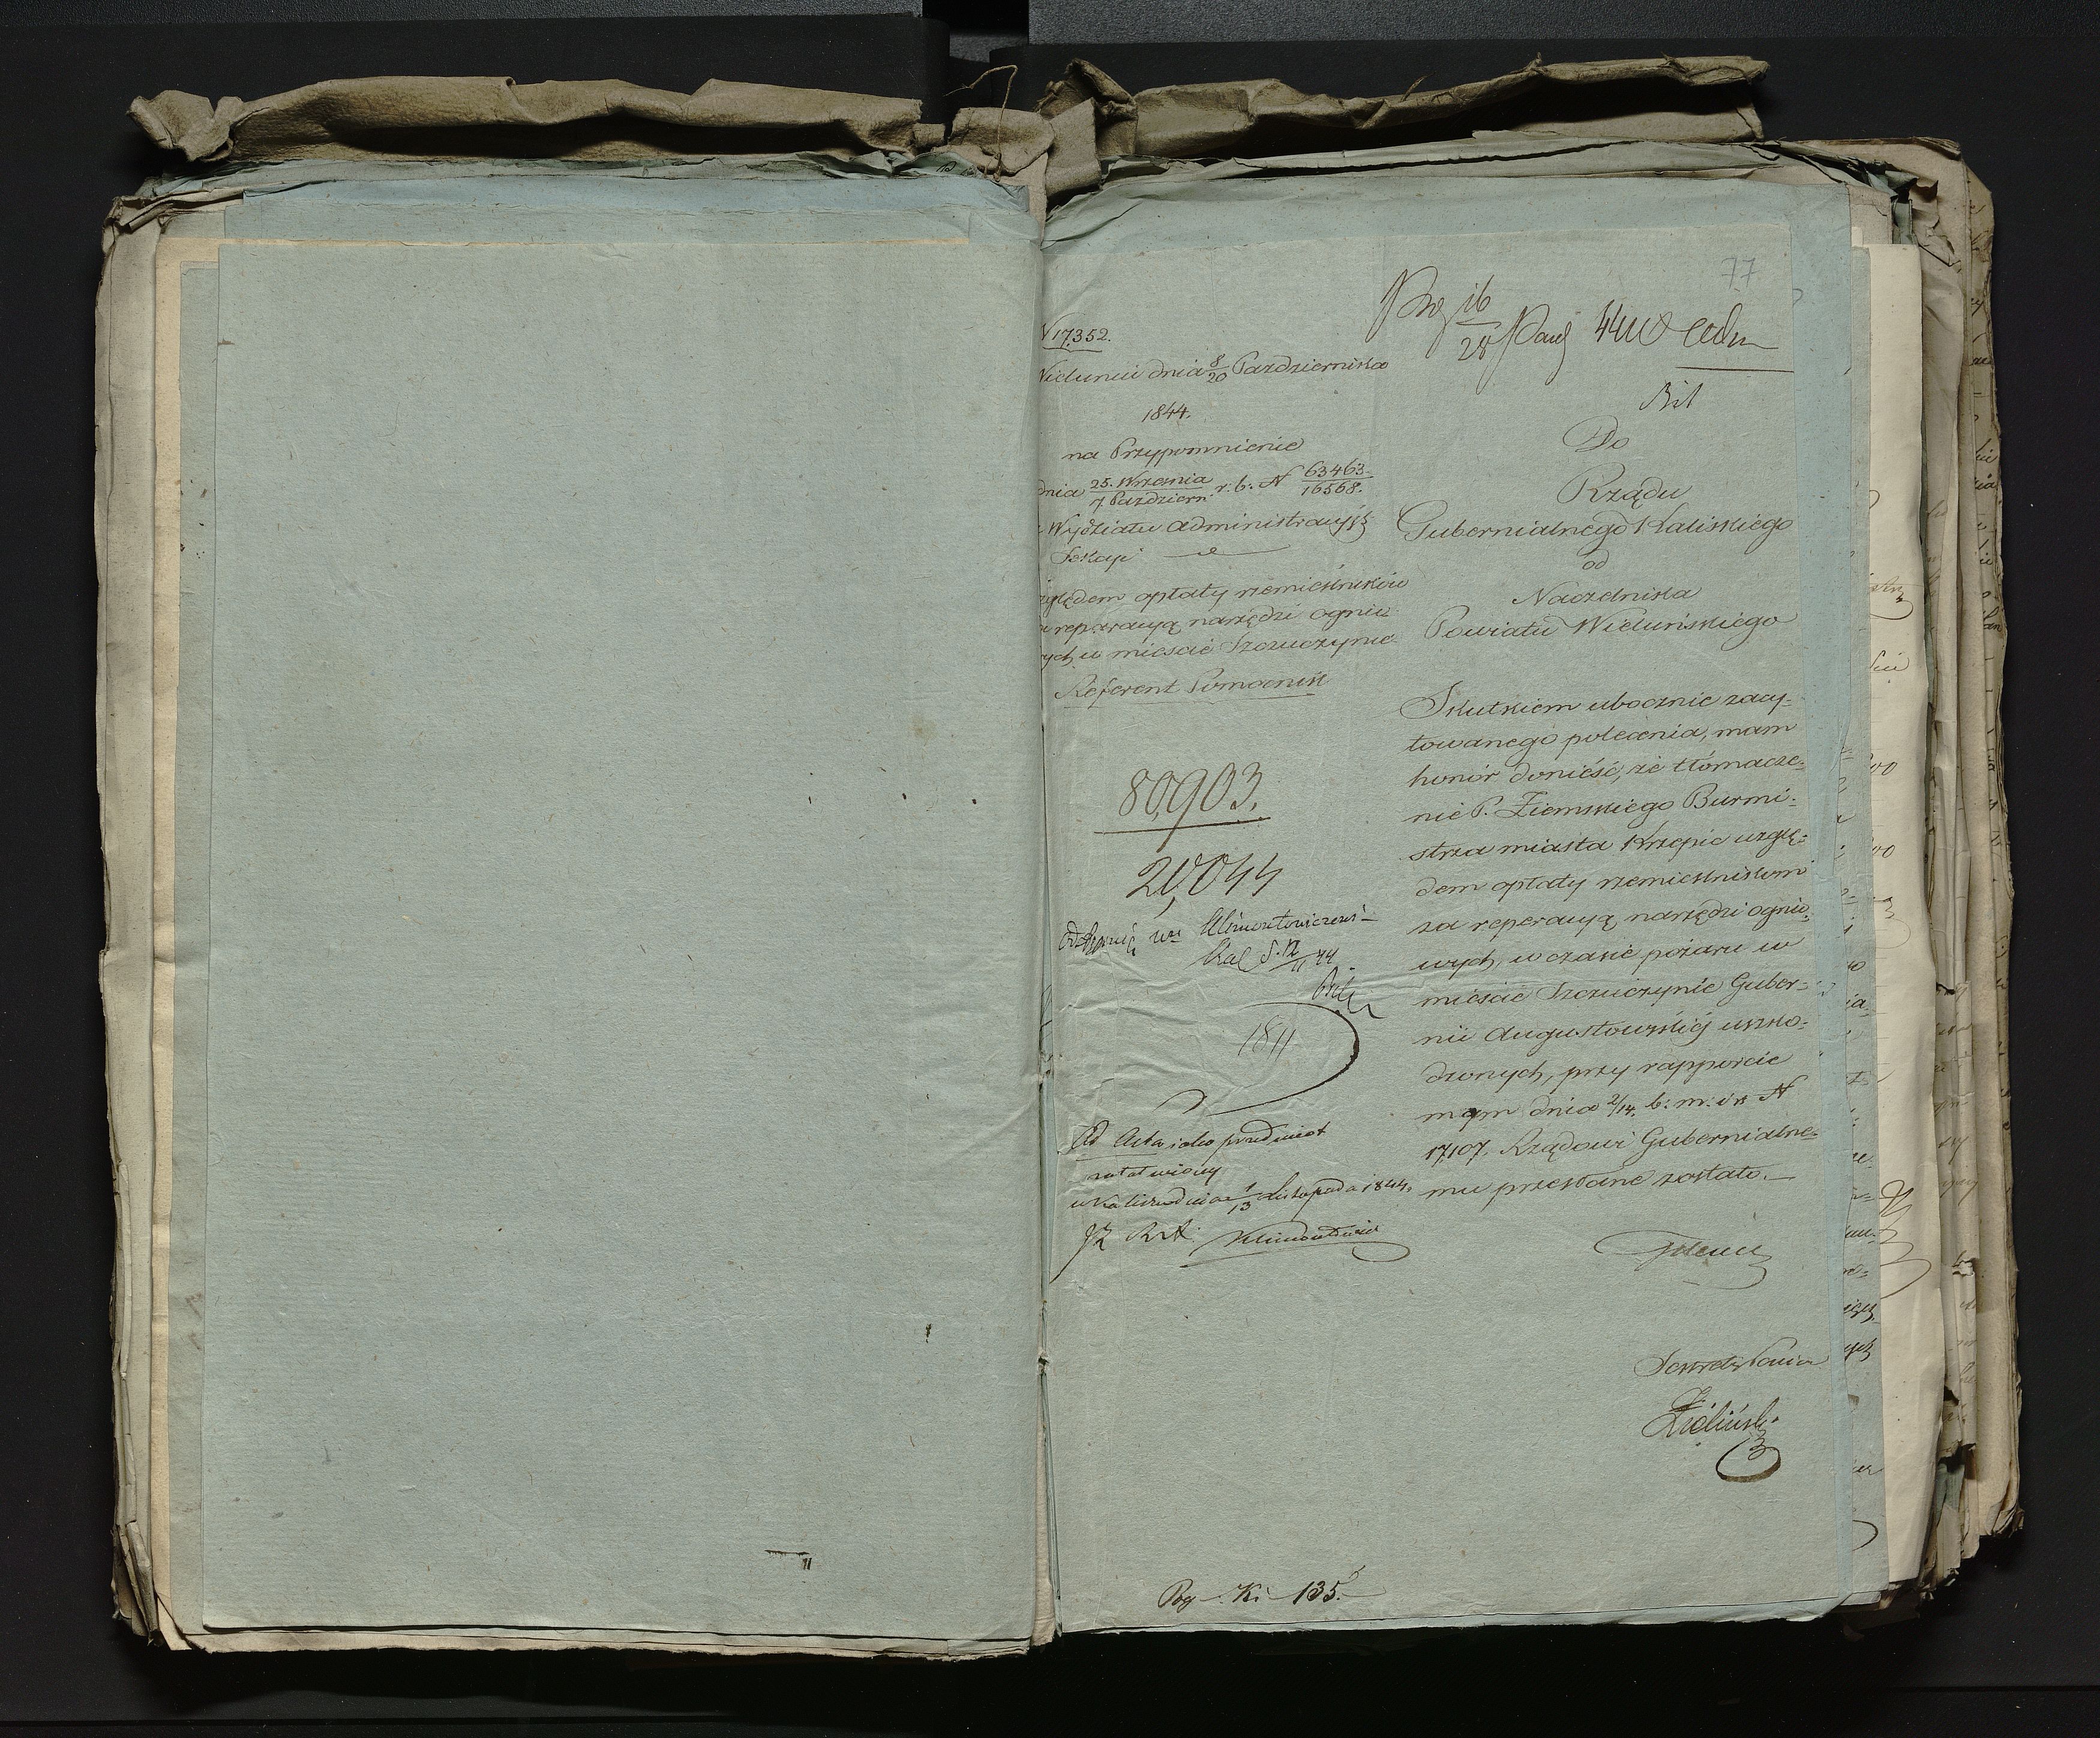 77
N 17,352.
Wieluniu dnia 8/20 Pazdziernika
1844.
na Przypomnienie
dnia 25. Wrzesnia / 7 Paździer. r. b. N 63463/16568.
Wydziału Administracyj:
Sekcyi
względem opłaty rzemieslników
za reperacyą narzędzi ognio
wych w miescie Szczuczynie
Referent Pomocnik
80,903.
20,044
Kal
1811
Ad Acta jako przedmiot
załatwiony
w Kaliszu dnia 1/13 Listopada 1844.
Klimontowicz
16/28 Paźd 44
Do
Rządu
Gubernialnego Kaliskiego
od
Naczelnika
Powiatu Wieluńskiego
Skutkiem ubocznie zacy-
towanego polecenia, mam
honór donieść, że tłómacze-
nie P. Ziemskiego Burmi-
strza miasta Krzepic wzglę-
dem opłaty rzemieslnikom
za reperacyą narzędzi ognio-
wych, w czasie pożaru w
mieście Szczuczynie Guber-
nii Augustowskiéj uszko-
dzonych, przy rapporcie
mym dnia 2/14. b: m: i r: N
17,107, Rządowi Gubernialne-
mu przesłane zostało.
Zieliński
135.